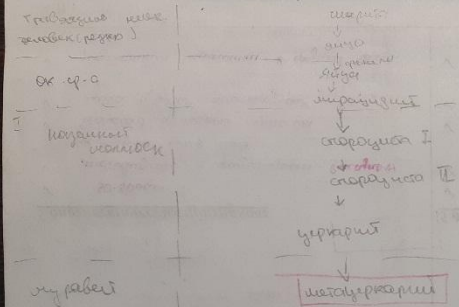 травоядное живот.
человек (редко)
ок. ср-а
I
наземный
моллюск
муравей
марита
↓
яйца
↓
яйца
↓
мирацидий
↓
спороциста I
↓
спороциста II
↓
церкарий
↓
метацеркарий